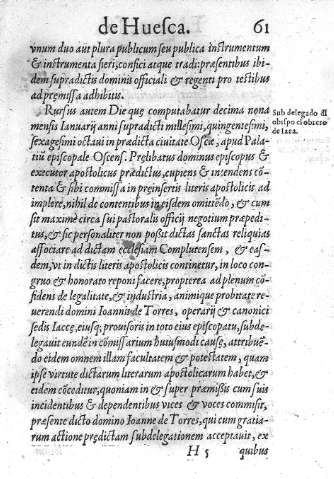 de Huesca. 61
vnum duo aut plura publicum seu publica instrumentum
& instrumenta fieri, confici atque tradi: præsentibus ibi-
dem supradictis dominis officiali & regenti pro testibus
ad premissa adhibitis.
Rursus autem Die quę computabatur decima nona
mensis Ianuarij anni supradicti millesimi, quingentesimi,
sexagesimi octaui in prædicta ciuitate Oscæ, apud Pala-
tiũ episcopale Oscens. Prelibatus dominus episcopus &
executor apostolicus prædictus, cupiens & intendens cõ-
tenta & sibi commissa in preinsertis literis apostolicis ad
implere, nihil de contentibus in eisdem omitedo, & cum
sit maximè circa sui pastoralis officij negotium præpedi-
tus, & sic personaliter non possit dictas sanctas reliquias
associare ad dictam ecclesiam Complutensem, & eas-
dem, vt in dictis literis apostolicis continetur, in loco con-
gruo & honorato reponi facere, propterea ad plenum cõ-
fidens de legalitate, & industria, animique probitate re-
uerendi domini Ioannis de Torres, operarij & canonici
sedis Iaccę, eiusq; prouisoris in toto eius episcopatu, subde-
legauit eundẽ in cõmissarium huiusmodi causę, attribuẽ-
do eidem omnem illam facultatem & potestatem, quam
ipse virtute dictarum literarum apostolicarum habet, &
eidem cõceditur, quoniam in & super præmissis cum suis
incidentibus & dependentibus vices & voces commisit,
præsente dicto domino Ioanne de Torres, qui cum gratia-
rum actione prędictam subdelegationem acceptauit, ex
H 5 quibus
Sub delegado dl
obispo el obrero
de Iaca.